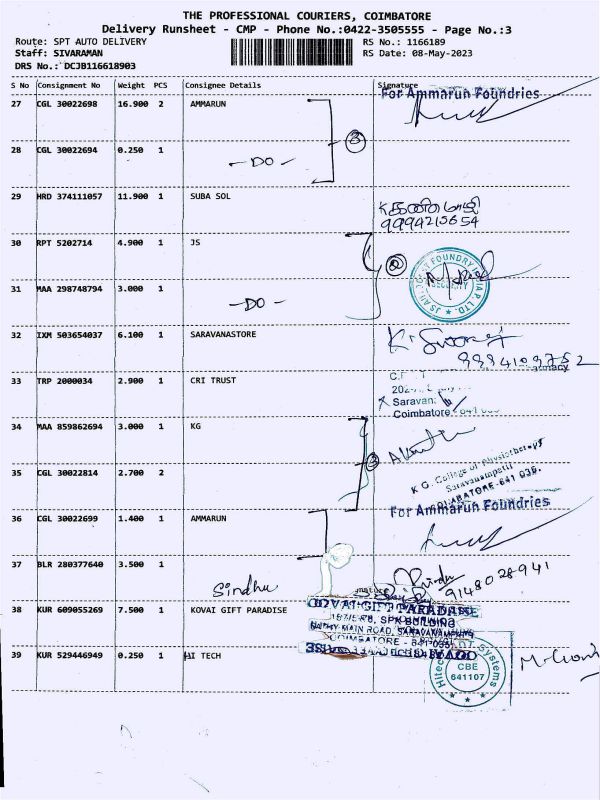 THE PROFESSIONAL COURIERS, COIMBATORE
Delivery Runsheet - CMP - Phone No.:0422-3505555 - Page No.:3
Route: SPT AUTO DELIVERY RS No.: 1166189
Staff: SIVARAMAN RS Date: 08-May-2023
DRS No.: DCJB116618903
S No Consignment No Weight PCS Consignee Details Signature
For Ammarun Foundries
27 CGL 30022698 16.900 2 AMMARUN
28 CGL 30022694 0.250 1
- DO -
29 HRD 374111057 11.900 1 SUBA SOL
9994215654
30 RPT 5202714 4.900 1 JS
31 MAA 298748794 3.000 1
- DO -
SECURITY
32 IXM 503654037 6.100 1 SARAVANASTORE
9994109752
33 TRP 2000034 2.900 1 CRI TRUST
Saravan
Coimbatore
34 MAA 859862694 3.000 1 KG
K G. College of Physiotherapy
Saravanampatti
COIMBATORE-641 035.
35 CGL 30022814 2.700 2
For Ammarun Foundries
36 CGL 30022699 1.400 1 AMMARUN
37 BLR 280377640 3.500 1
Sindhu
9148028941
38 KUR 609055269 7.500 1 KOVAI GIFT PARADISE
39 KUR 529446949 0.250 1 HI TECH
Hitech Systems
CBE
641107